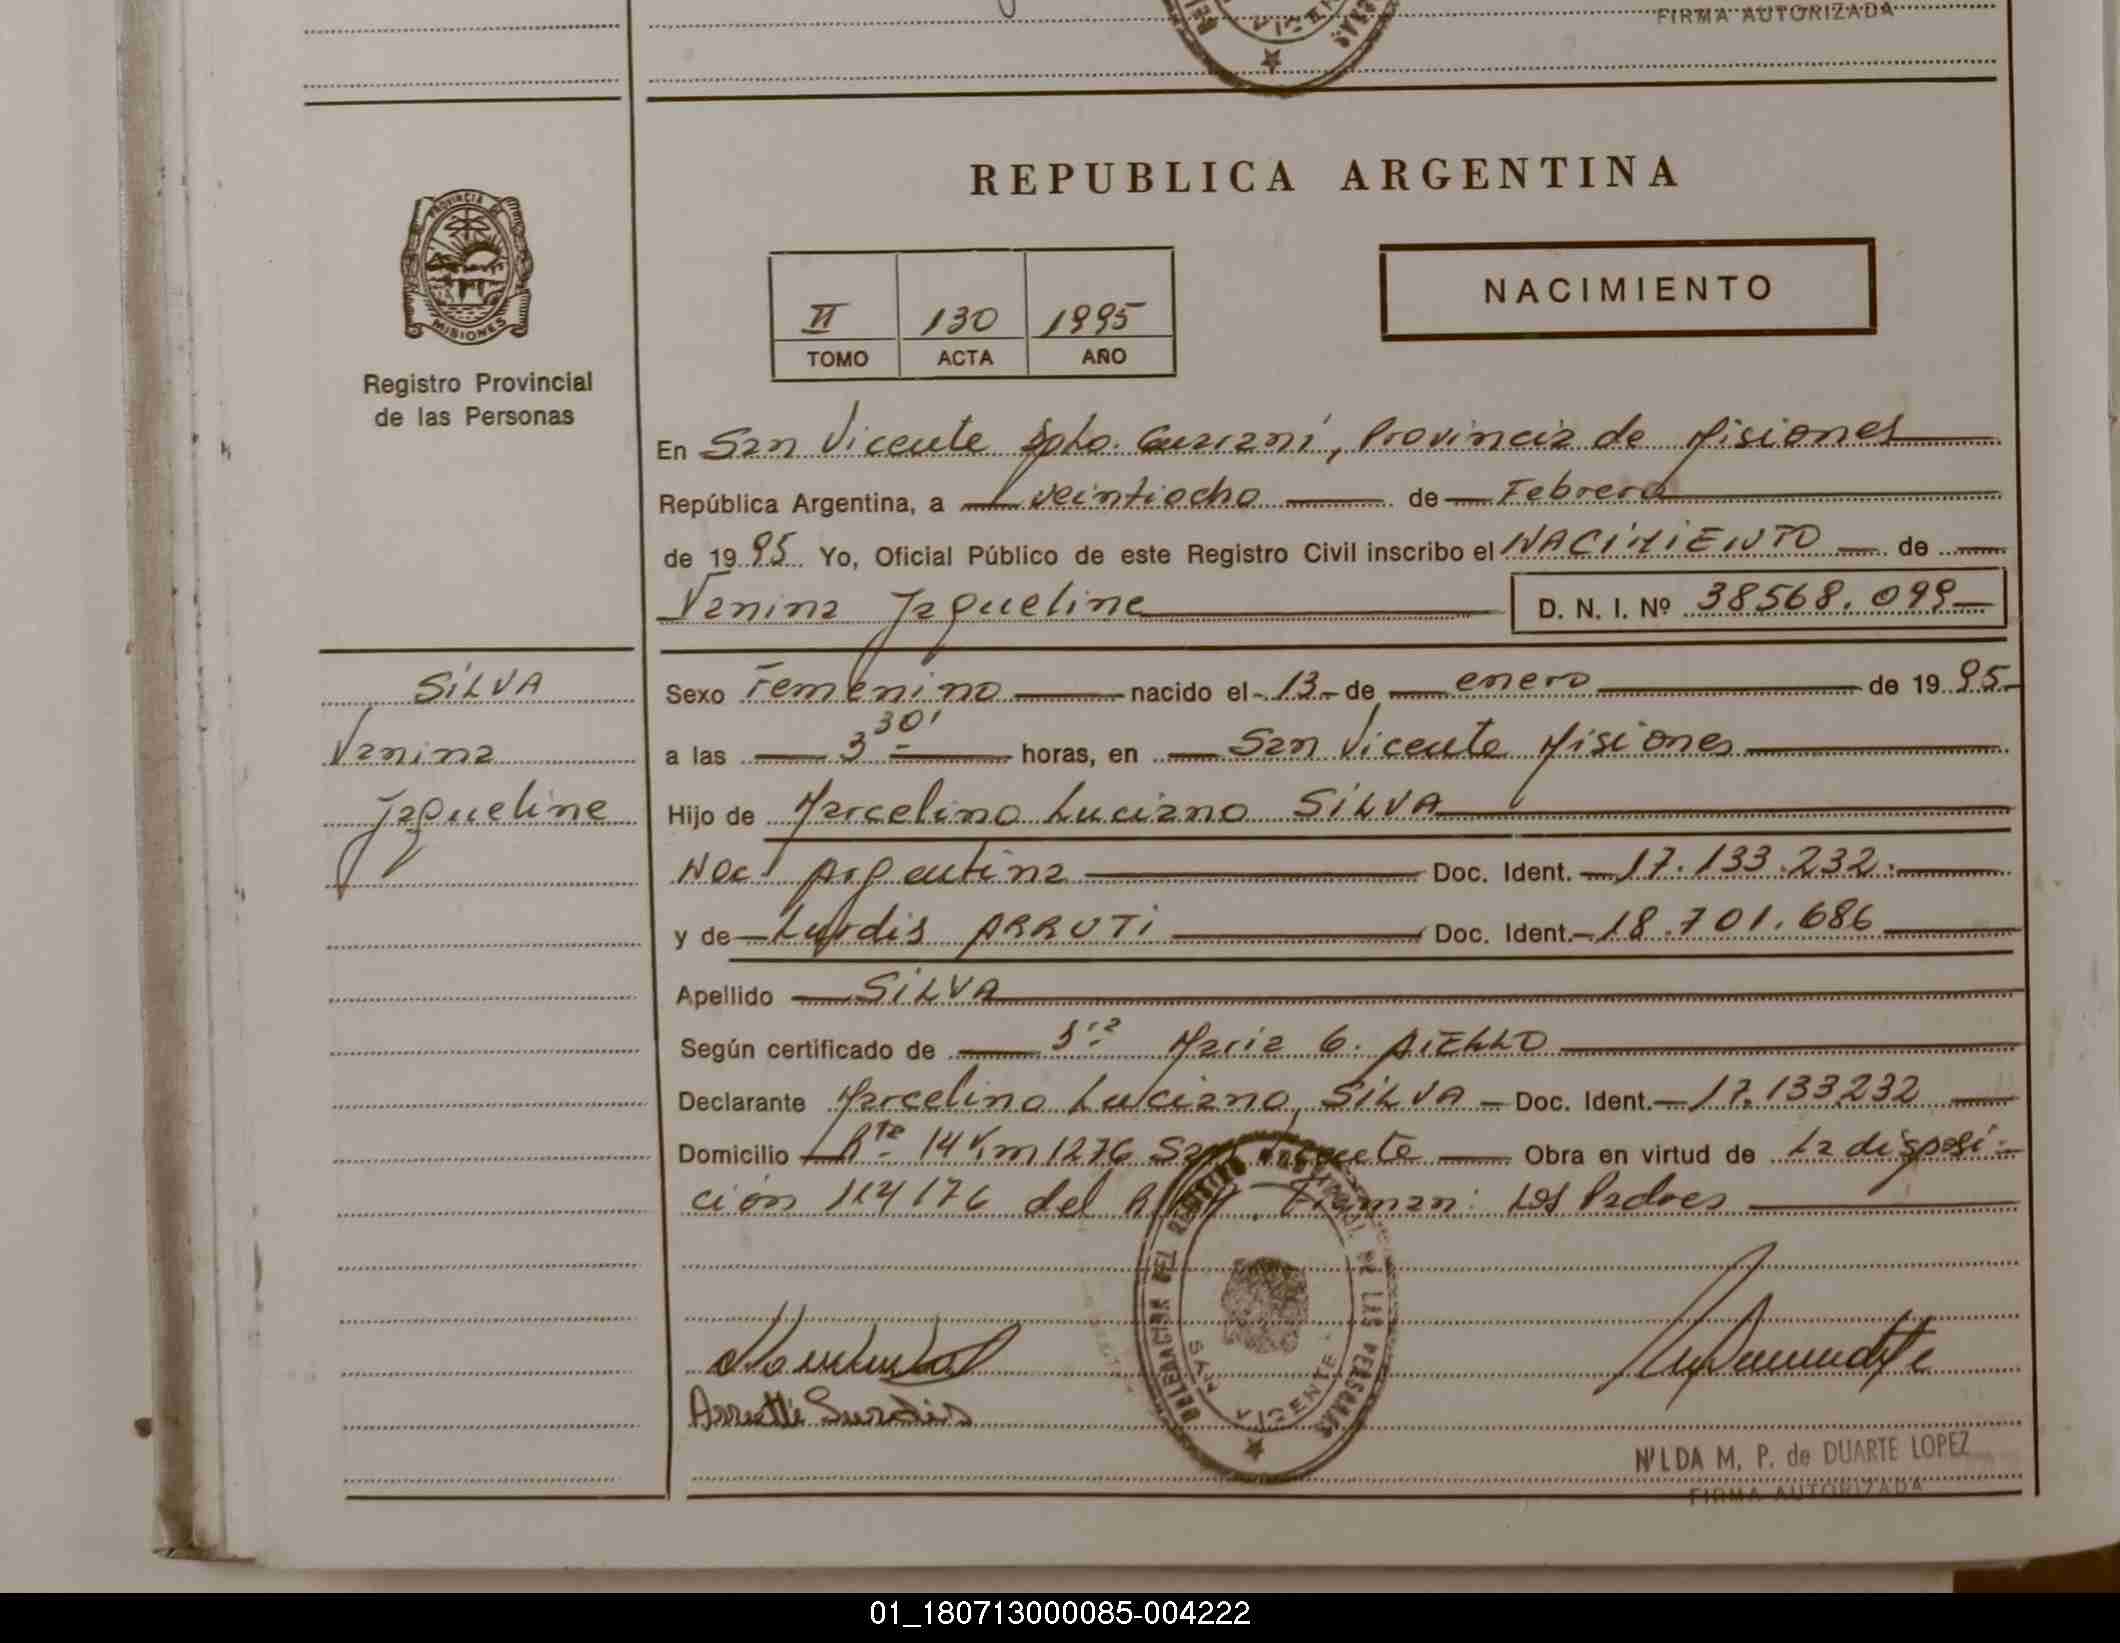 FIRMA AUTORIZADA
REPUBLICA ARGENTINA
PROVINCIA DE
MISIONES
Registro Provincial
de las Personas
NACIMIENTO
II 130 1995
TOMO ACTA AÑO
En San Vicente Dpto. Guaraní, Provincia de Misiones
República Argentina, a veintiocho de Febrero
de 1995 Yo, Oficial Público de este Registro Civil inscribo el NACIMIENTO de
Vanina Jaqueline D. N. I. Nº 38568.099
SILVA
Vanina
Jaqueline
Sexo Femenino nacido el 13 de enero de 1995
a las 3 30' horas, en San Vicente Misiones
Hijo de Marcelino Luciano SILVA
Nac. Argentina Doc. Ident. 17.133.232
y de Lurdis ARRUTI Doc. Ident. 18.701.686
Apellido SILVA
Según certificado de Dra Maria G. AIELLO
Declarante Marcelino Luciano SILVA Doc. Ident. 17.133232
Domicilio Rta 14 Km 1276 San Vicente Obra en virtud de la disposi-
ción 114/76 del Firman: Los Padres
DELEGACION DEL REGISTRO PROVINCIAL DE LAS PERSONAS
SAN VICENTE
NILDA M. P. de DUARTE LOPEZ
FIRMA AUTORIZADA
01_180713000085-004222